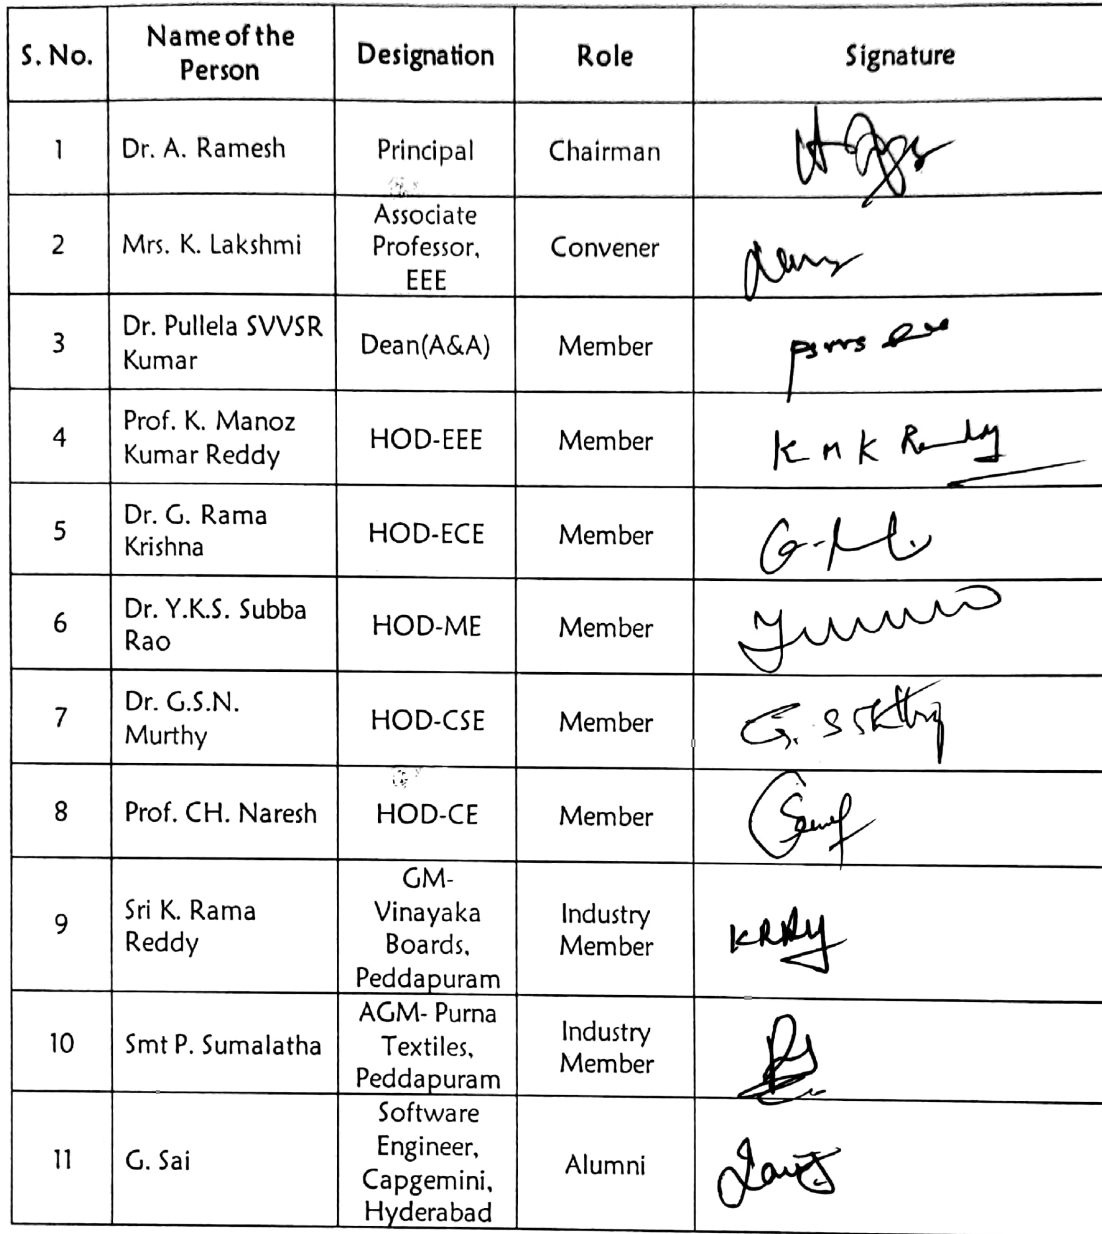 S. No. Name of the Person Designation Role Signature
1 Dr. A. Ramesh Principal Chairman
2 Mrs. K. Lakshmi Associate Professor, EEE Convener
3 Dr. Pullela SVVSR Kumar Dean(A&A) Member
4 Prof. K. Manoz Kumar Reddy HOD-EEE Member K M K Reddy
5 Dr. G. Rama Krishna HOD-ECE Member
6 Dr. Y.K.S. Subba Rao HOD-ME Member
7 Dr. G.S.N. Murthy HOD-CSE Member
8 Prof. CH. Naresh HOD-CE Member
9 Sri K. Rama Reddy GM- Vinayaka Boards, Peddapuram Industry Member
10 Smt P. Sumalatha AGM- Purna Textiles, Peddapuram Industry Member
11 G. Sai Software Engineer, Capgemini, Hyderabad Alumni